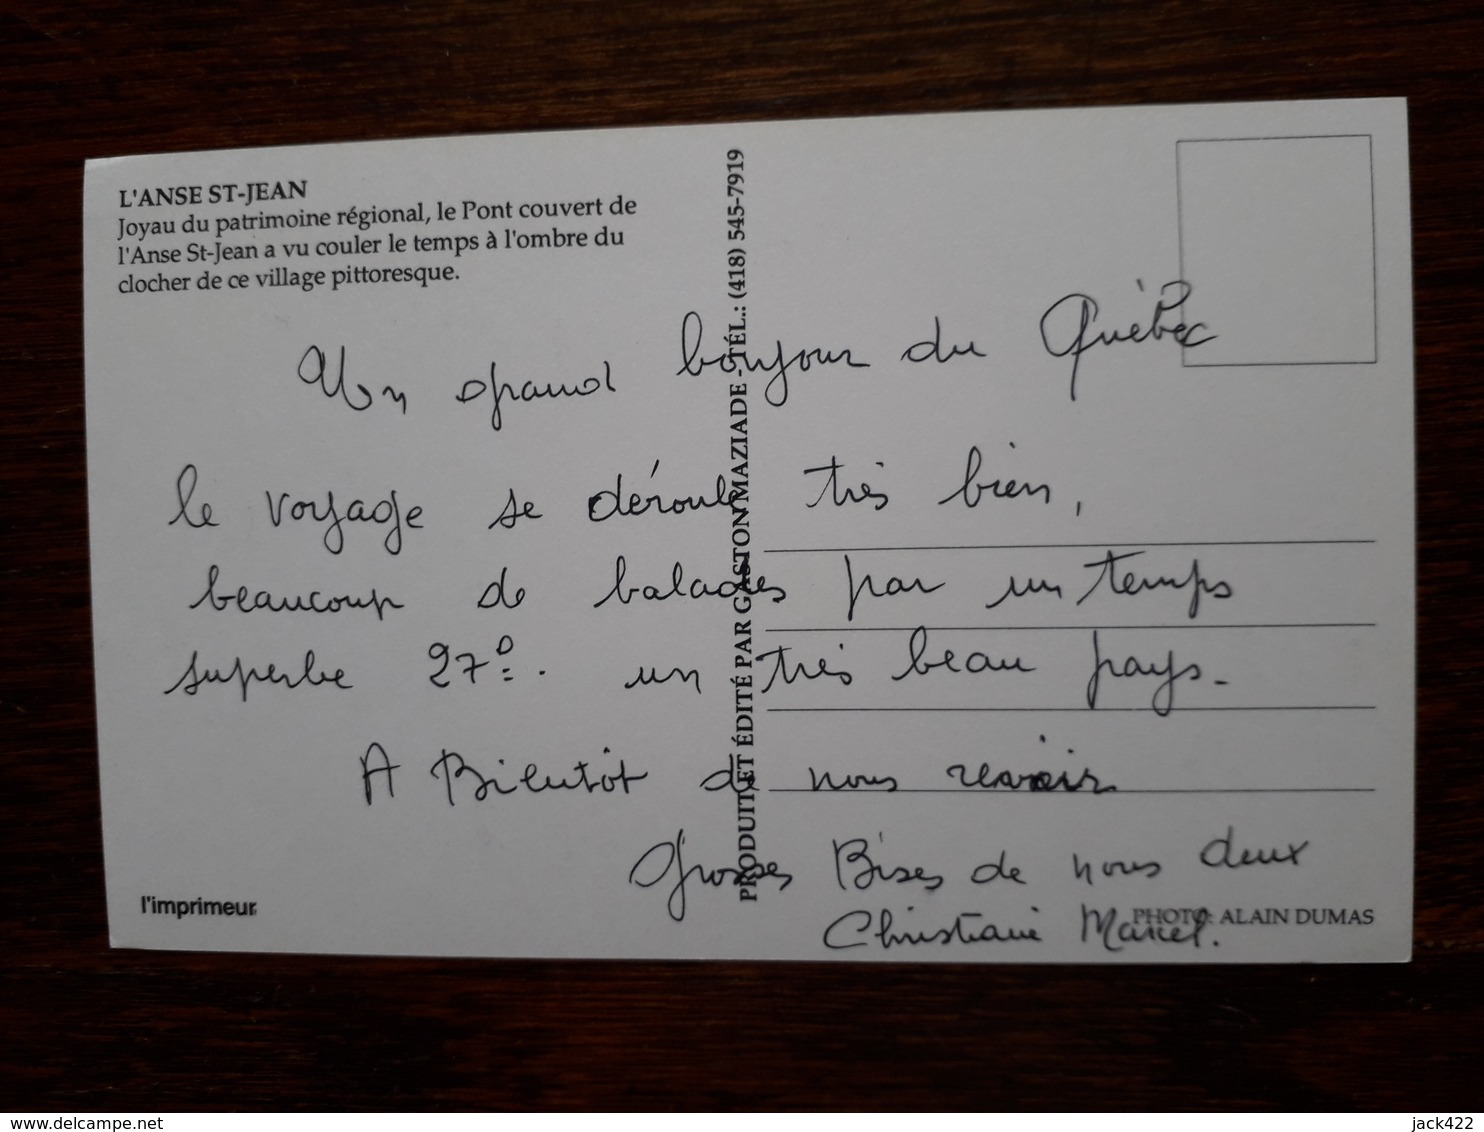 L'ANSE ST-JEAN
Joyau du patrimoine régional, le Pont couvert de
l'Anse St-Jean a vu couler le temps à l'ombre du
clocher de ce village pittoresque.
PRODUIT ET ÉDITÉ PAR GASTON MAZIADE - TÉL.: (418) 545-7919
Un grand bonjour du Québec
le voyage se déroule très bien,
beaucoup de balades par un temps
superbe 27°. un très beau pays.
A Bientôt de nous revoir
Grosses Bises de nous deux
Christiane Marcel.
l'imprimeur
PHOTO: ALAIN DUMAS
delcampe.net
jack422